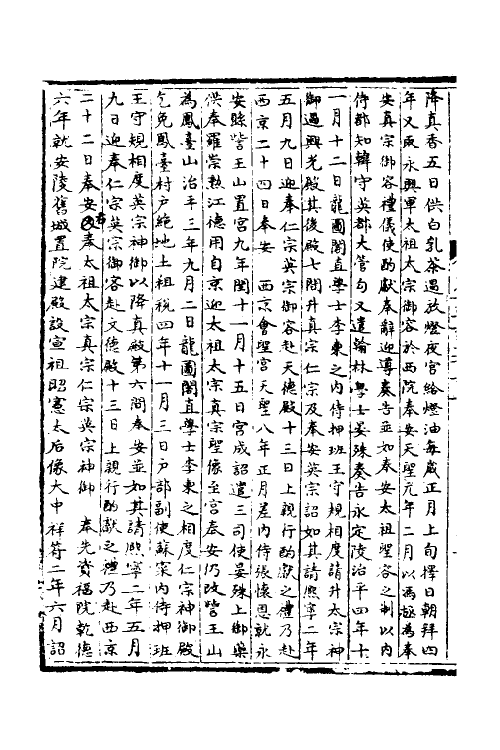 降真香五日供白乳茶遇放燈夜官給燈油每歲正月上旬擇日朝拜四
年又取永興軍太祖太宗御容於西院奉安天聖元年二月以馮拯為奉
安真宗御容禮儀使酌獻奉辭迎導奏告並如奉安太祖聖容之制以内
侍郝知韓守英郡大管勾又遣翰林學士晏殊奏告永定陵治平四年十
一月十二日龍圖閣直學士李柬之内侍押班王守規相度請升太宗神
御過興先殿其後殿七間升真宗仁宗及奉安英宗詔如其請熙寧二年
五月九日迎奉仁宗英宗御容赴天德殿十三日上親行酌獻之禮乃赴
西京二十四日奉安 西京會聖宫天聖八年正月差内侍張懷恩就永
安縣訾王山置宫九年閏十一月十五日宫成詔遣三司使晏殊上御藥
供奉羅崇勲江德用自京迎太祖太宗真宗聖像至宫奉安仍改訾王山
為鳳臺山治平三年九月二日龍圖閣直學士李柬之相度仁宗神御殿
乞免鳳臺村户絶地土租税四年十一月三日户部副使蘇寀内侍押班
王守規相度英宗神御以降真殿第六間奉安並如其請熙寧二年五月
九日迎奉仁宗英宗御容赴文德殿十三日上親行酌獻之禮乃赴西京
二十二日奉安奉太祖太宗真宗仁宗英宗神御 奉先資福院乾德
六年就安陵舊城置院建殿設宣祖昭憲太后像大中祥符二年六月詔